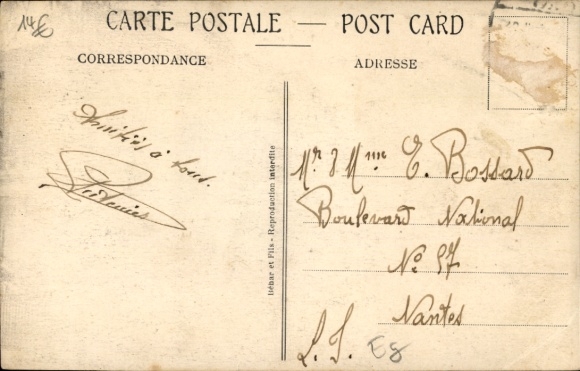 14
CARTE POSTALE — POST CARD
CORRESPONDANCE
ADRESSE
Amitiés à tous.
Dénar et Fils - Reproduction interdite
Mr & Mme E. Bossard
Boulevard National
No 57
Nantes
L. I.
E8